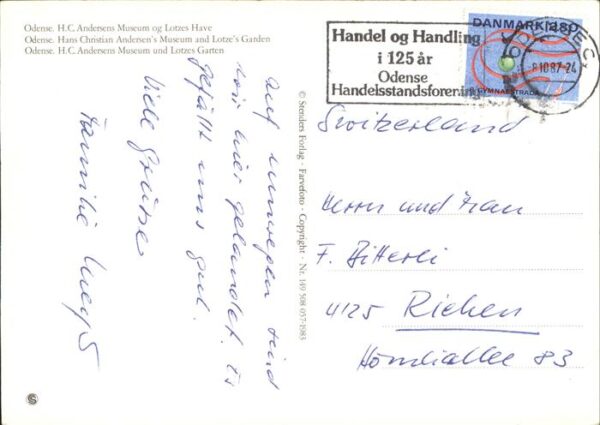 Odense. H.C. Andersens Museum og Lotzes Have
Odense. Hans Christian Andersen's Museum and Lotze's Garden
Odense. H.C. Andersens Museum und Lotzes Garten
Handel og Handling
i 125 år
Odense
Handelsstandsforening
DANMARK 280
GYMNAESTRADA
8.10.87-24
© Stenders Forlag - Farvefoto - Copyright - Nr. 149 508 057-1983
Auf unserer sind
wir hier gelandet. Es
gefällt uns gut.
Viele Grüsse
Familie
Switzerland
Herrn und Frau
F. Bitterli
4125 Riehen
83
S